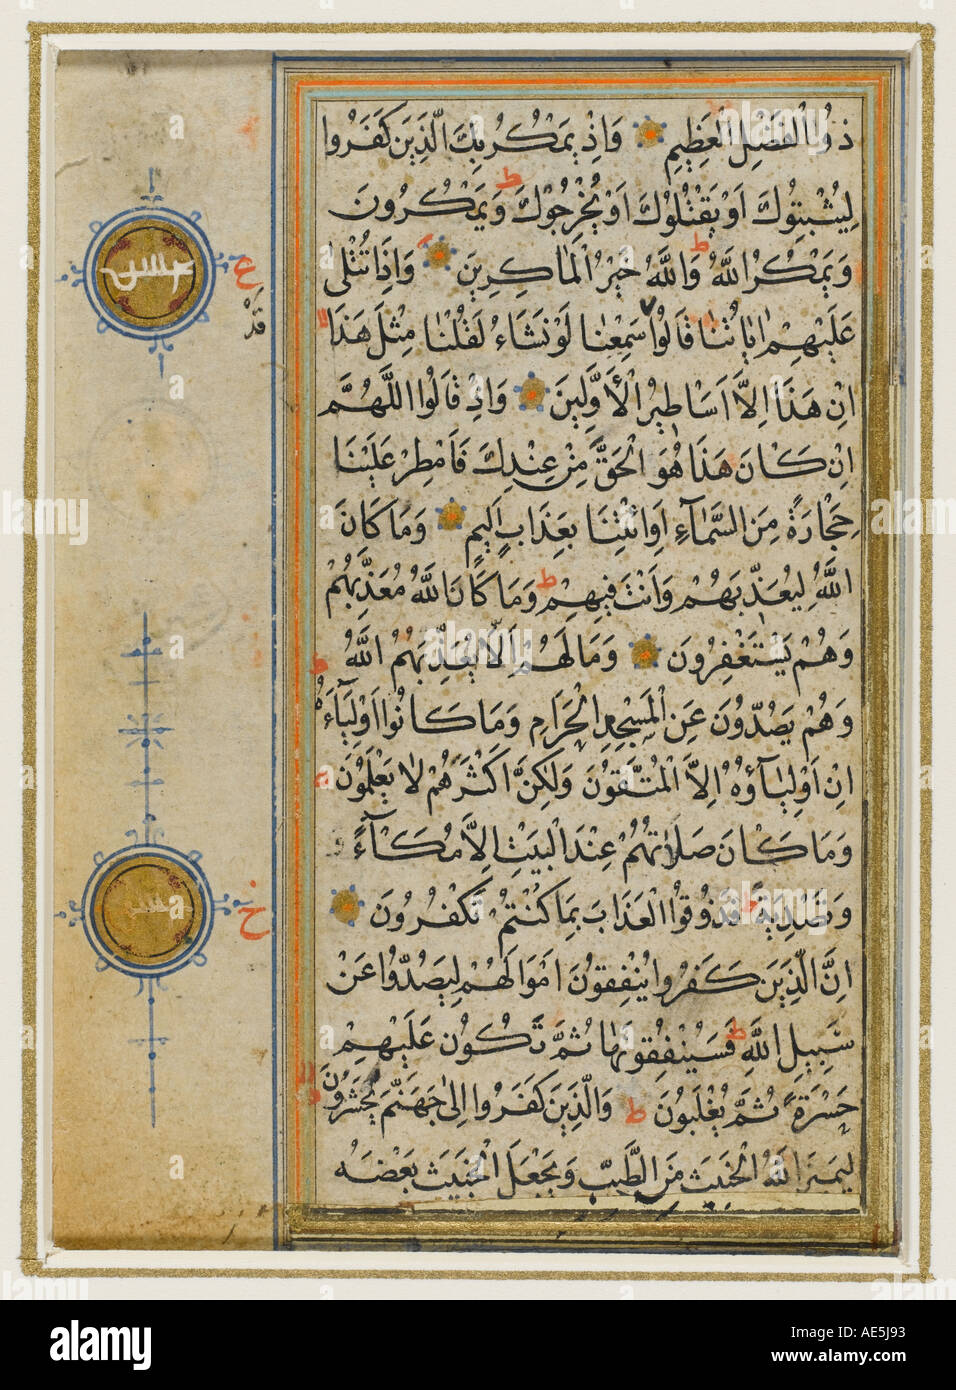 ذُو الْفَضْلِ الْعَظِيمِ وَاِذْ يَمْكُرُ بِكَ الَّذِينَ كَفَرُوا
لِيُثْبِتُوكَ اَوْ يَقْتُلُوكَ اَوْ يُخْرِجُوكَ ط وَيَمْكُرُونَ
وَيَمْكُرُ اللّٰهُ ط وَاللّٰهُ خَيْرُ الْمَاكِرِينَ وَاِذَا تُتْلٰى
عَلَيْهِمْ اٰيَاتُنَا قَالُوا سَمِعْنَا لَوْ نَشَاءُ لَقُلْنَا مِثْلَ هَذَا
اِنْ هَذَا اِلَّا اَسَاطِيرُ الْاَوَّلِينَ وَاِذْ قَالُوا اللَّهُمَّ
اِنْ كَانَ هَذَا هُوَ الْحَقَّ مِنْ عِنْدِكَ فَاَمْطِرْ عَلَيْنَا
حِجَارَةً مِنَ السَّمَآءِ اَوِ ائْتِنَا بِعَذَابٍ اَلِيمٍ وَمَا كَانَ
اللّٰهُ لِيُعَذِّبَهُمْ وَاَنْتَ فِيهِمْ ط وَمَا كَانَ اللّٰهُ مُعَذِّبَهُمْ
وَهُمْ يَسْتَغْفِرُونَ وَمَا لَهُمْ اَلَّا يُعَذِّبَهُمُ اللّٰهُ
وَهُمْ يَصُدُّونَ عَنِ الْمَسْجِدِ الْحَرَامِ وَمَا كَانُوا اَوْلِيَآءَهُ ط
اِنْ اَوْلِيَآؤُهُ اِلَّا الْمُتَّقُونَ وَلَكِنَّ اَكْثَرَهُمْ لَا يَعْلَمُونَ
وَمَا كَانَ صَلَاتُهُمْ عِنْدَ الْبَيْتِ اِلَّا مُكَآءً
وَتَصْدِيَةً ط فَذُوقُوا الْعَذَابَ بِمَا كُنْتُمْ تَكْفُرُونَ
اِنَّ الَّذِينَ كَفَرُوا يُنْفِقُونَ اَمْوَالَهُمْ لِيَصُدُّوا عَنْ
سَبِيلِ اللّٰهِ ط فَسَيُنْفِقُونَهَا ثُمَّ تَكُونُ عَلَيْهِمْ
حَسْرَةً ثُمَّ يُغْلَبُونَ ط وَالَّذِينَ كَفَرُوا اِلٰى جَهَنَّمَ يُحْشَرُونَ
لِيَمِيزَ اللّٰهُ الْخَبِيثَ مِنَ الطَّيِّبِ وَيَجْعَلَ الْخَبِيثَ بَعْضَهُ
ع
خ
alamy
Image ID: AE5J93
www.alamy.com